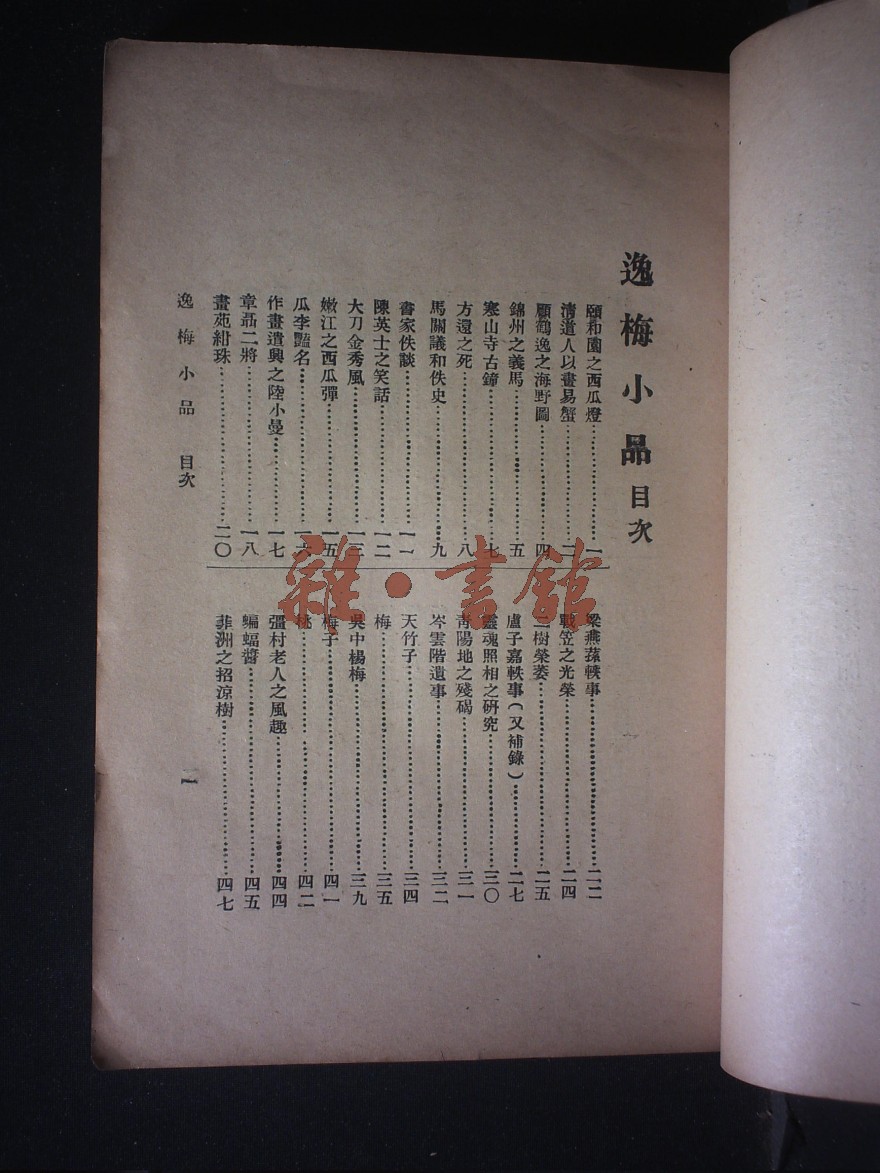 逸梅小品 目次
頤和園之西瓜燈……一
清道人以畫易蟹……二
顧鶴逸之海野圖……四
錦州之義馬……五
寒山寺古鐘……七
方還之死……八
馬關議和佚史……九
書家佚談……一一
陳英士之笑話……一二
大刀金秀風……一三
嫩江之西瓜彈……一五
瓜李豔名……一六
作畫遣興之陸小曼……一七
章聶二將……一八
畫苑紺珠……二〇
梁燕蓀軼事……二二
戰笠之光榮……二四
二樹榮萎……二五
盧子嘉軼事(又補錄)……二七
靈魂照相之研究……三〇
青陽地之殘碣……三一
岑雲階遺事……三二
天竹子……三四
梅……三五
吳中楊梅……三九
梅子……四一
桃……四二
彊村老人之風趣……四四
蝙蝠醬……四五
菲洲之招涼樹……四七
逸梅小品 目次
一
雜·書館